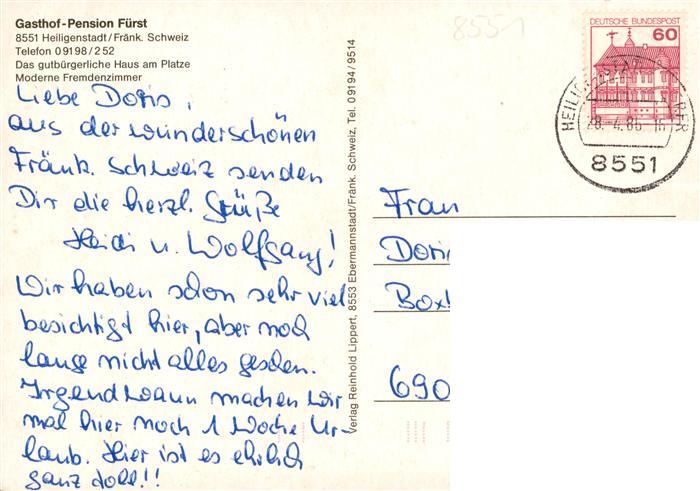 Gasthof-Pension Fürst
8551 Heiligenstadt/Fränk. Schweiz
Telefon 09198/252
Das gutbürgerliche Haus am Platze
Moderne Fremdenzimmer
Liebe Doris,
aus der wunderschönen
Fränk. Schweiz senden
Dir die herzl. Grüße
Heidi u. Wolfgang!
Wir haben schon sehr viel
besichtigt hier, aber noch
lange nicht alles gesehen.
Irgendwann machen wir
mal hier noch 1 Woche Ur-
laub. Hier ist es ehrlich
ganz toll!!
Verlag Reinhold Lippert, 8553 Ebermannstadt/Fränk. Schweiz, Tel. 09194/9514
8551
DEUTSCHE BUNDESPOST
60
28.-4.86.-16
8551
Frau
Dori
Box
690